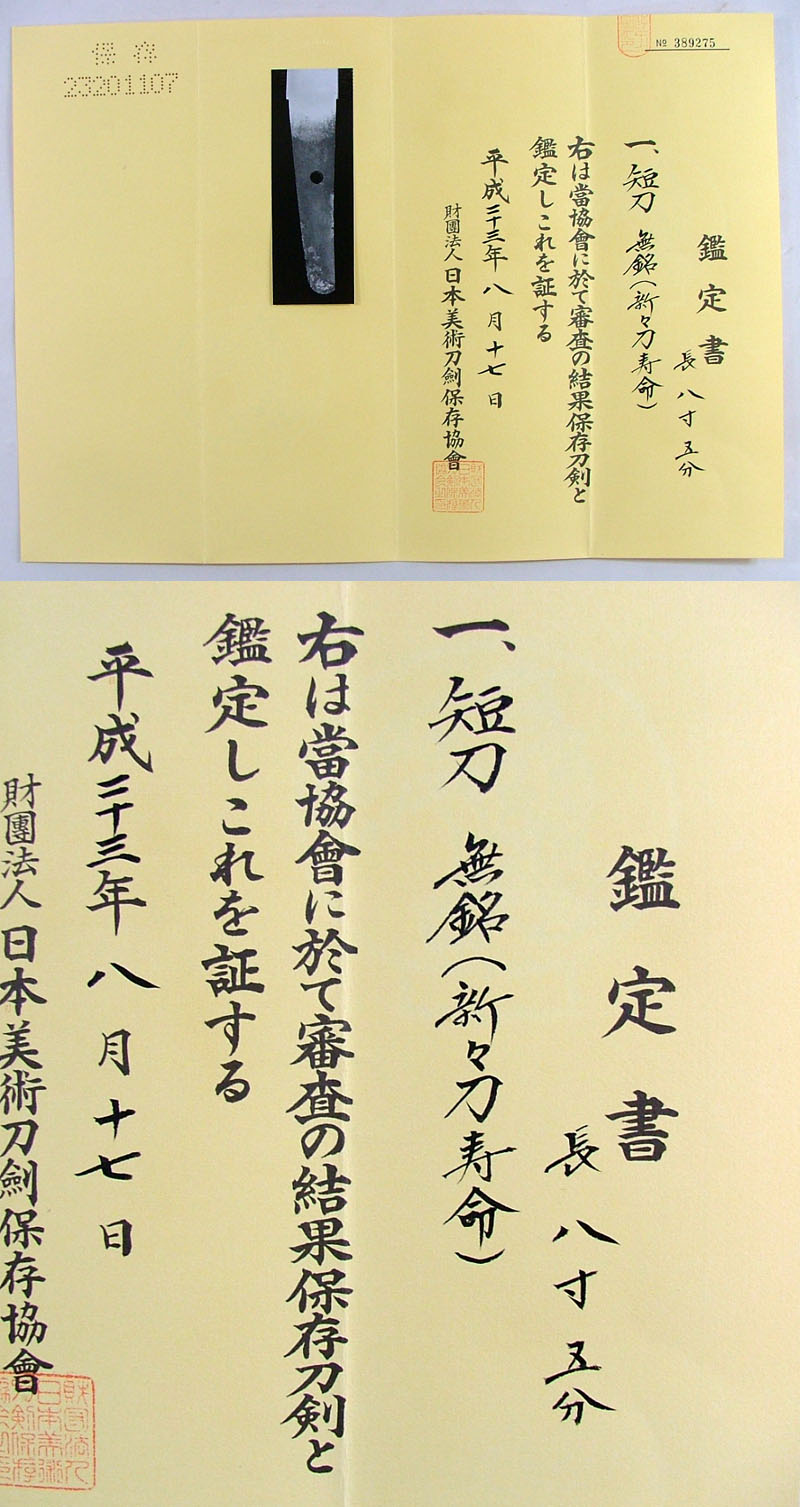 保存
23201107
№ 389275
鑑定書
長 八寸 五分
一、短刀 無銘(新々刀寿命)
右は當協會に於て審査の結果保存刀剣と
鑑定しこれを証する
平成二十三年 八月 十七日
財團法人 日本美術刀劍保存協會
鑑定書
長 八寸 五分
一、短刀 無銘(新々刀寿命)
右は當協會に於て審査の結果保存刀剣と
鑑定しこれを証する
平成二十三年 八月 十七日
財團法人 日本美術刀劍保存協會